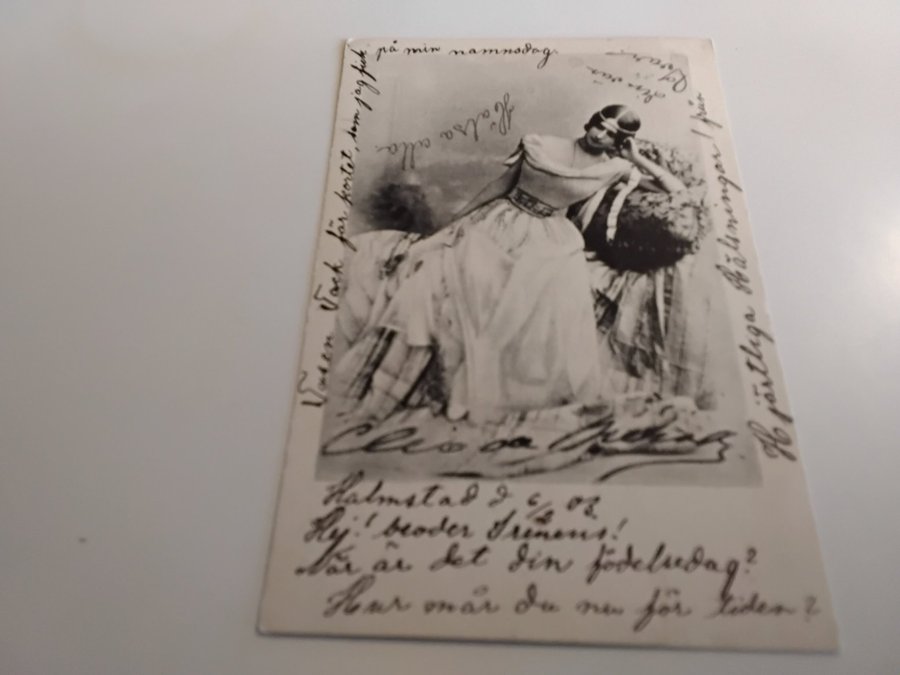 Halmstad d 6/3 02
Hej! broder Irenëus!
När är det din födelsedag?
Hur mår du nu för tiden?
Tack för kortet, som jag fick
på min namnsdag.
Hjärtliga Hälsningar från
din vän
Hälsa alla
Cléo de Mérode